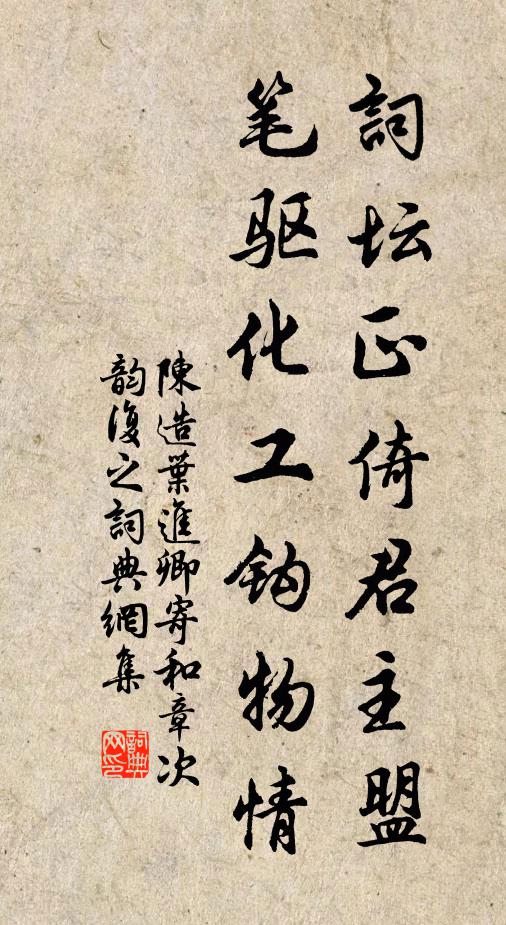 詞坛正倚君主盟
笔驱化工钩物情
陳造葉進卿寄和章次
韵復之詞典網集
詞典网印